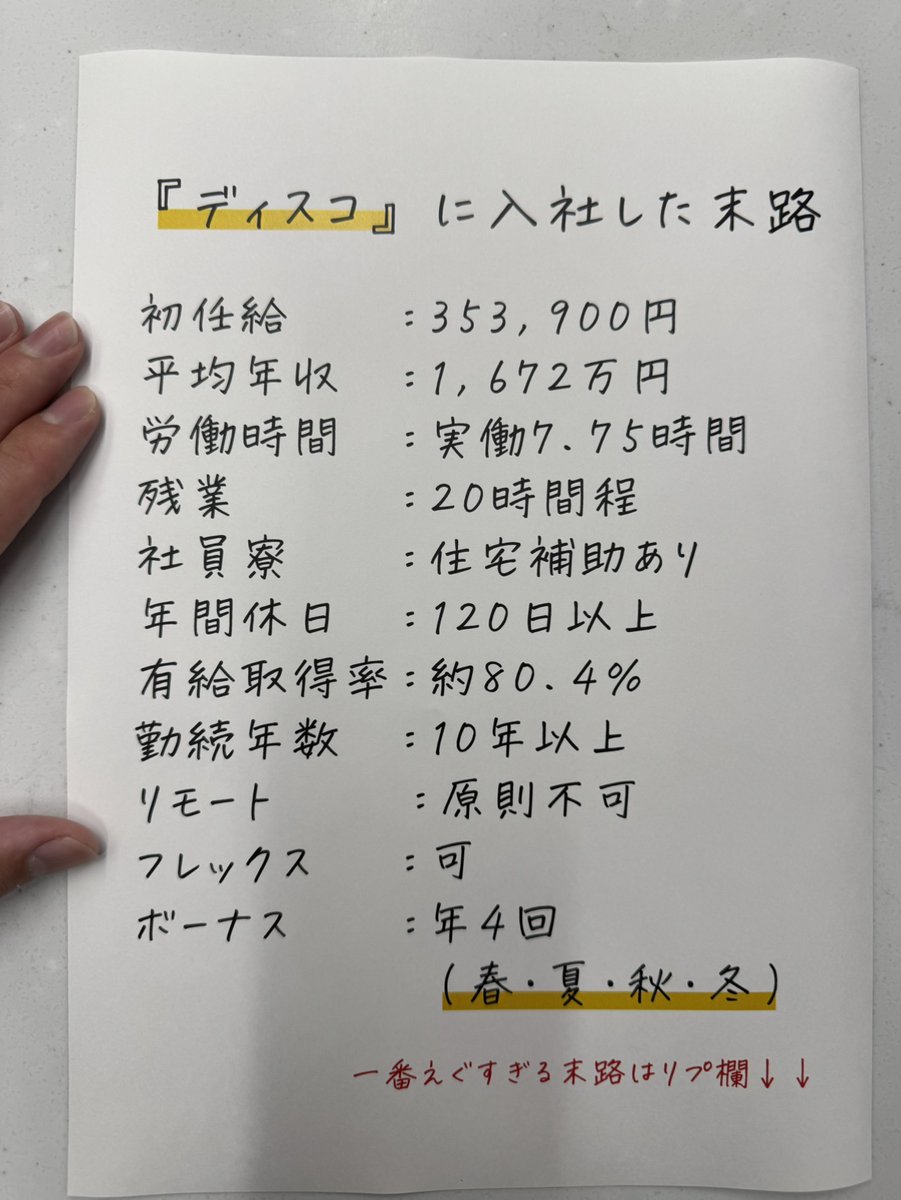 『ディスコ』に入社した末路
初任給：353,900円
平均年収：1,672万円
労働時間：実働7.75時間
残業：20時間程
社員寮：住宅補助あり
年間休日：120日以上
有給取得率：約80.4%
勤続年数：10年以上
リモート：原則不可
フレックス：可
ボーナス：年4回
(春・夏・秋・冬)
一番えぐすぎる末路はリプ欄↓↓